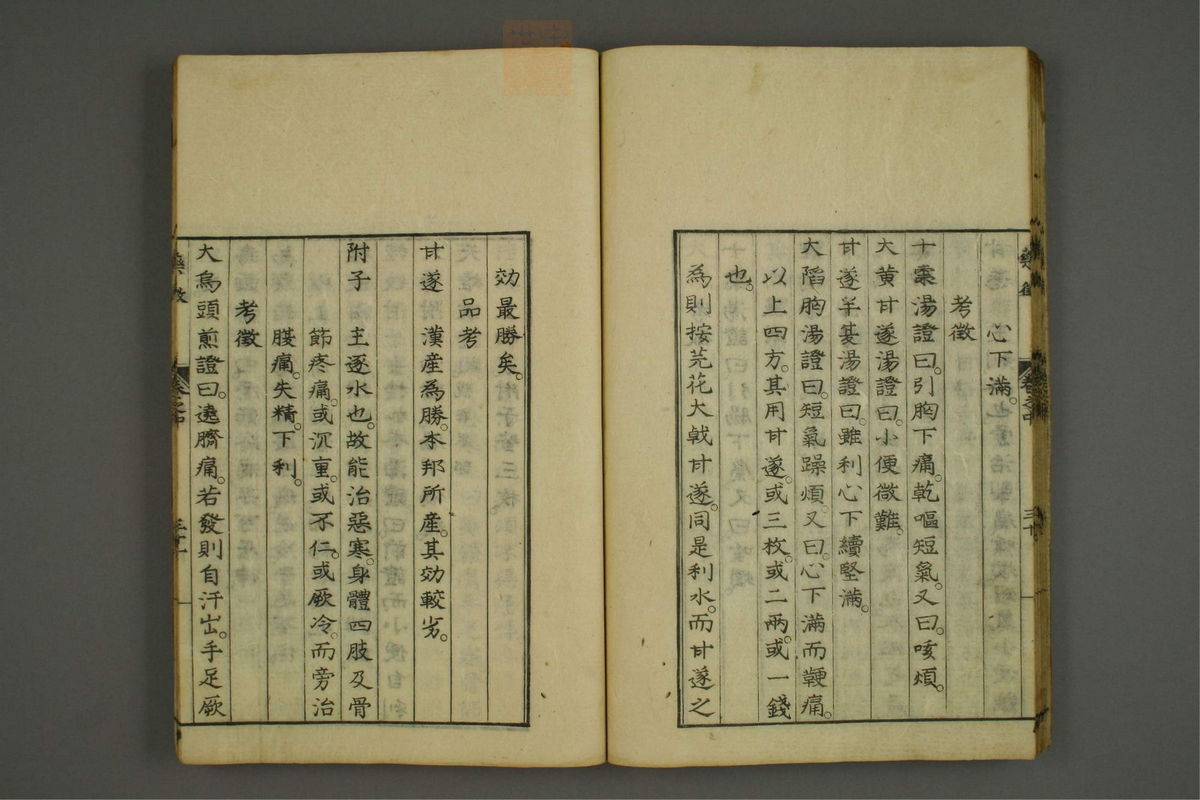 心下滿。
考徵
十棗湯證曰。引胸下痛。乾嘔短氣。又曰。咳煩。
大黃甘遂湯證曰。小便微難。
甘遂半夏湯證曰。雖利心下續堅滿。
大陷胸湯證曰。短氣躁煩。又曰。心下滿而鞕痛。
以上四方。其用甘遂。或三枚。或二兩。或一錢
也。
為則按芫花大戟甘遂。同是利水而甘遂之
藥徵
卷之中
三十
効最勝矣。
品考
甘遂 漢産為勝。本邦所産。其効較劣。
附子 主逐水也。故能治惡寒。身體四肢及骨
節疼痛。或沉重。或不仁。或厥冷。而旁治
腹痛。失精。下利。
考徵
大烏頭煎證曰。遶臍痛。若發則自汗出。手足厥
藥徵
卷之中